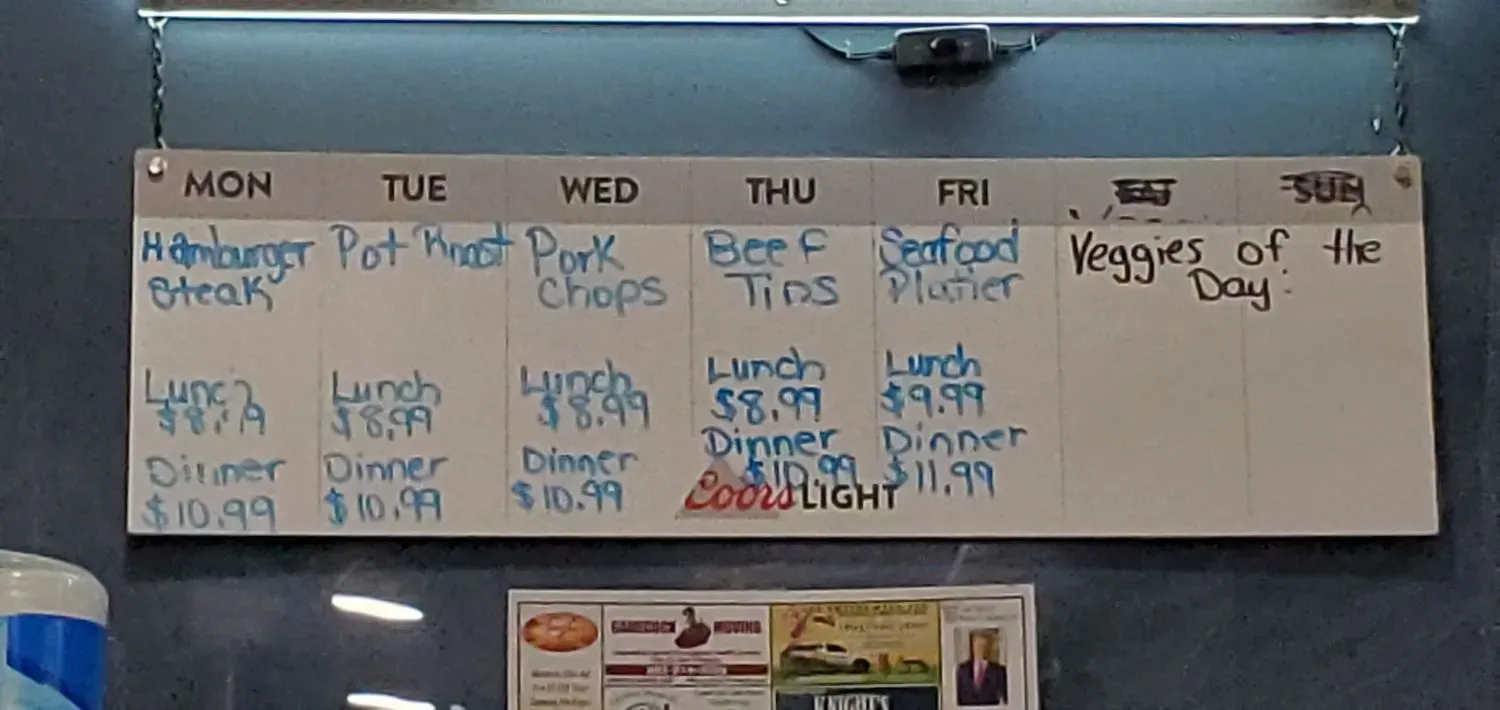 MON TUE WED THU FRI SAT SUN
Hamburger
Steak
Lunch
$8.99
Dinner
$10.99
Pot Roast
Lunch
$8.99
Dinner
$10.99
Pork
Chops
Lunch
$8.99
Dinner
$10.99
Beef
Tips
Lunch
$8.99
Dinner
$10.99
Seafood
Platter
Lunch
$9.99
Dinner
$11.99
Veggies of the
Day:
Coors LIGHT
GAMECOCK MOVING
KNIGHT'S